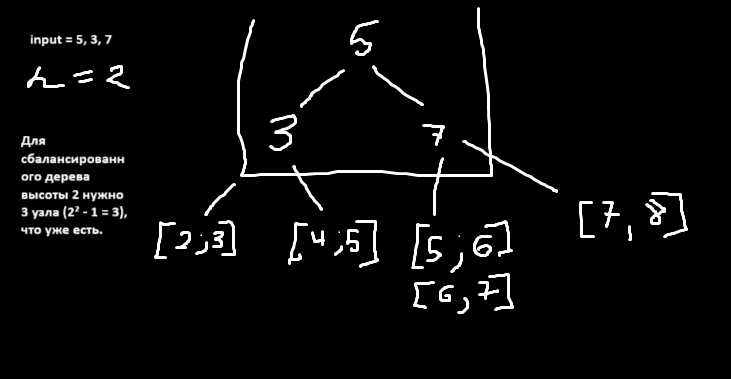 input = 5, 3, 7
h = 2
Для
сбалансированн
ого дерева
высоты 2 нужно
3 узла (2² - 1 = 3),
что уже есть.
5
3 7
[2;3] [4;5] [5;6] [7,8]
[6,7]